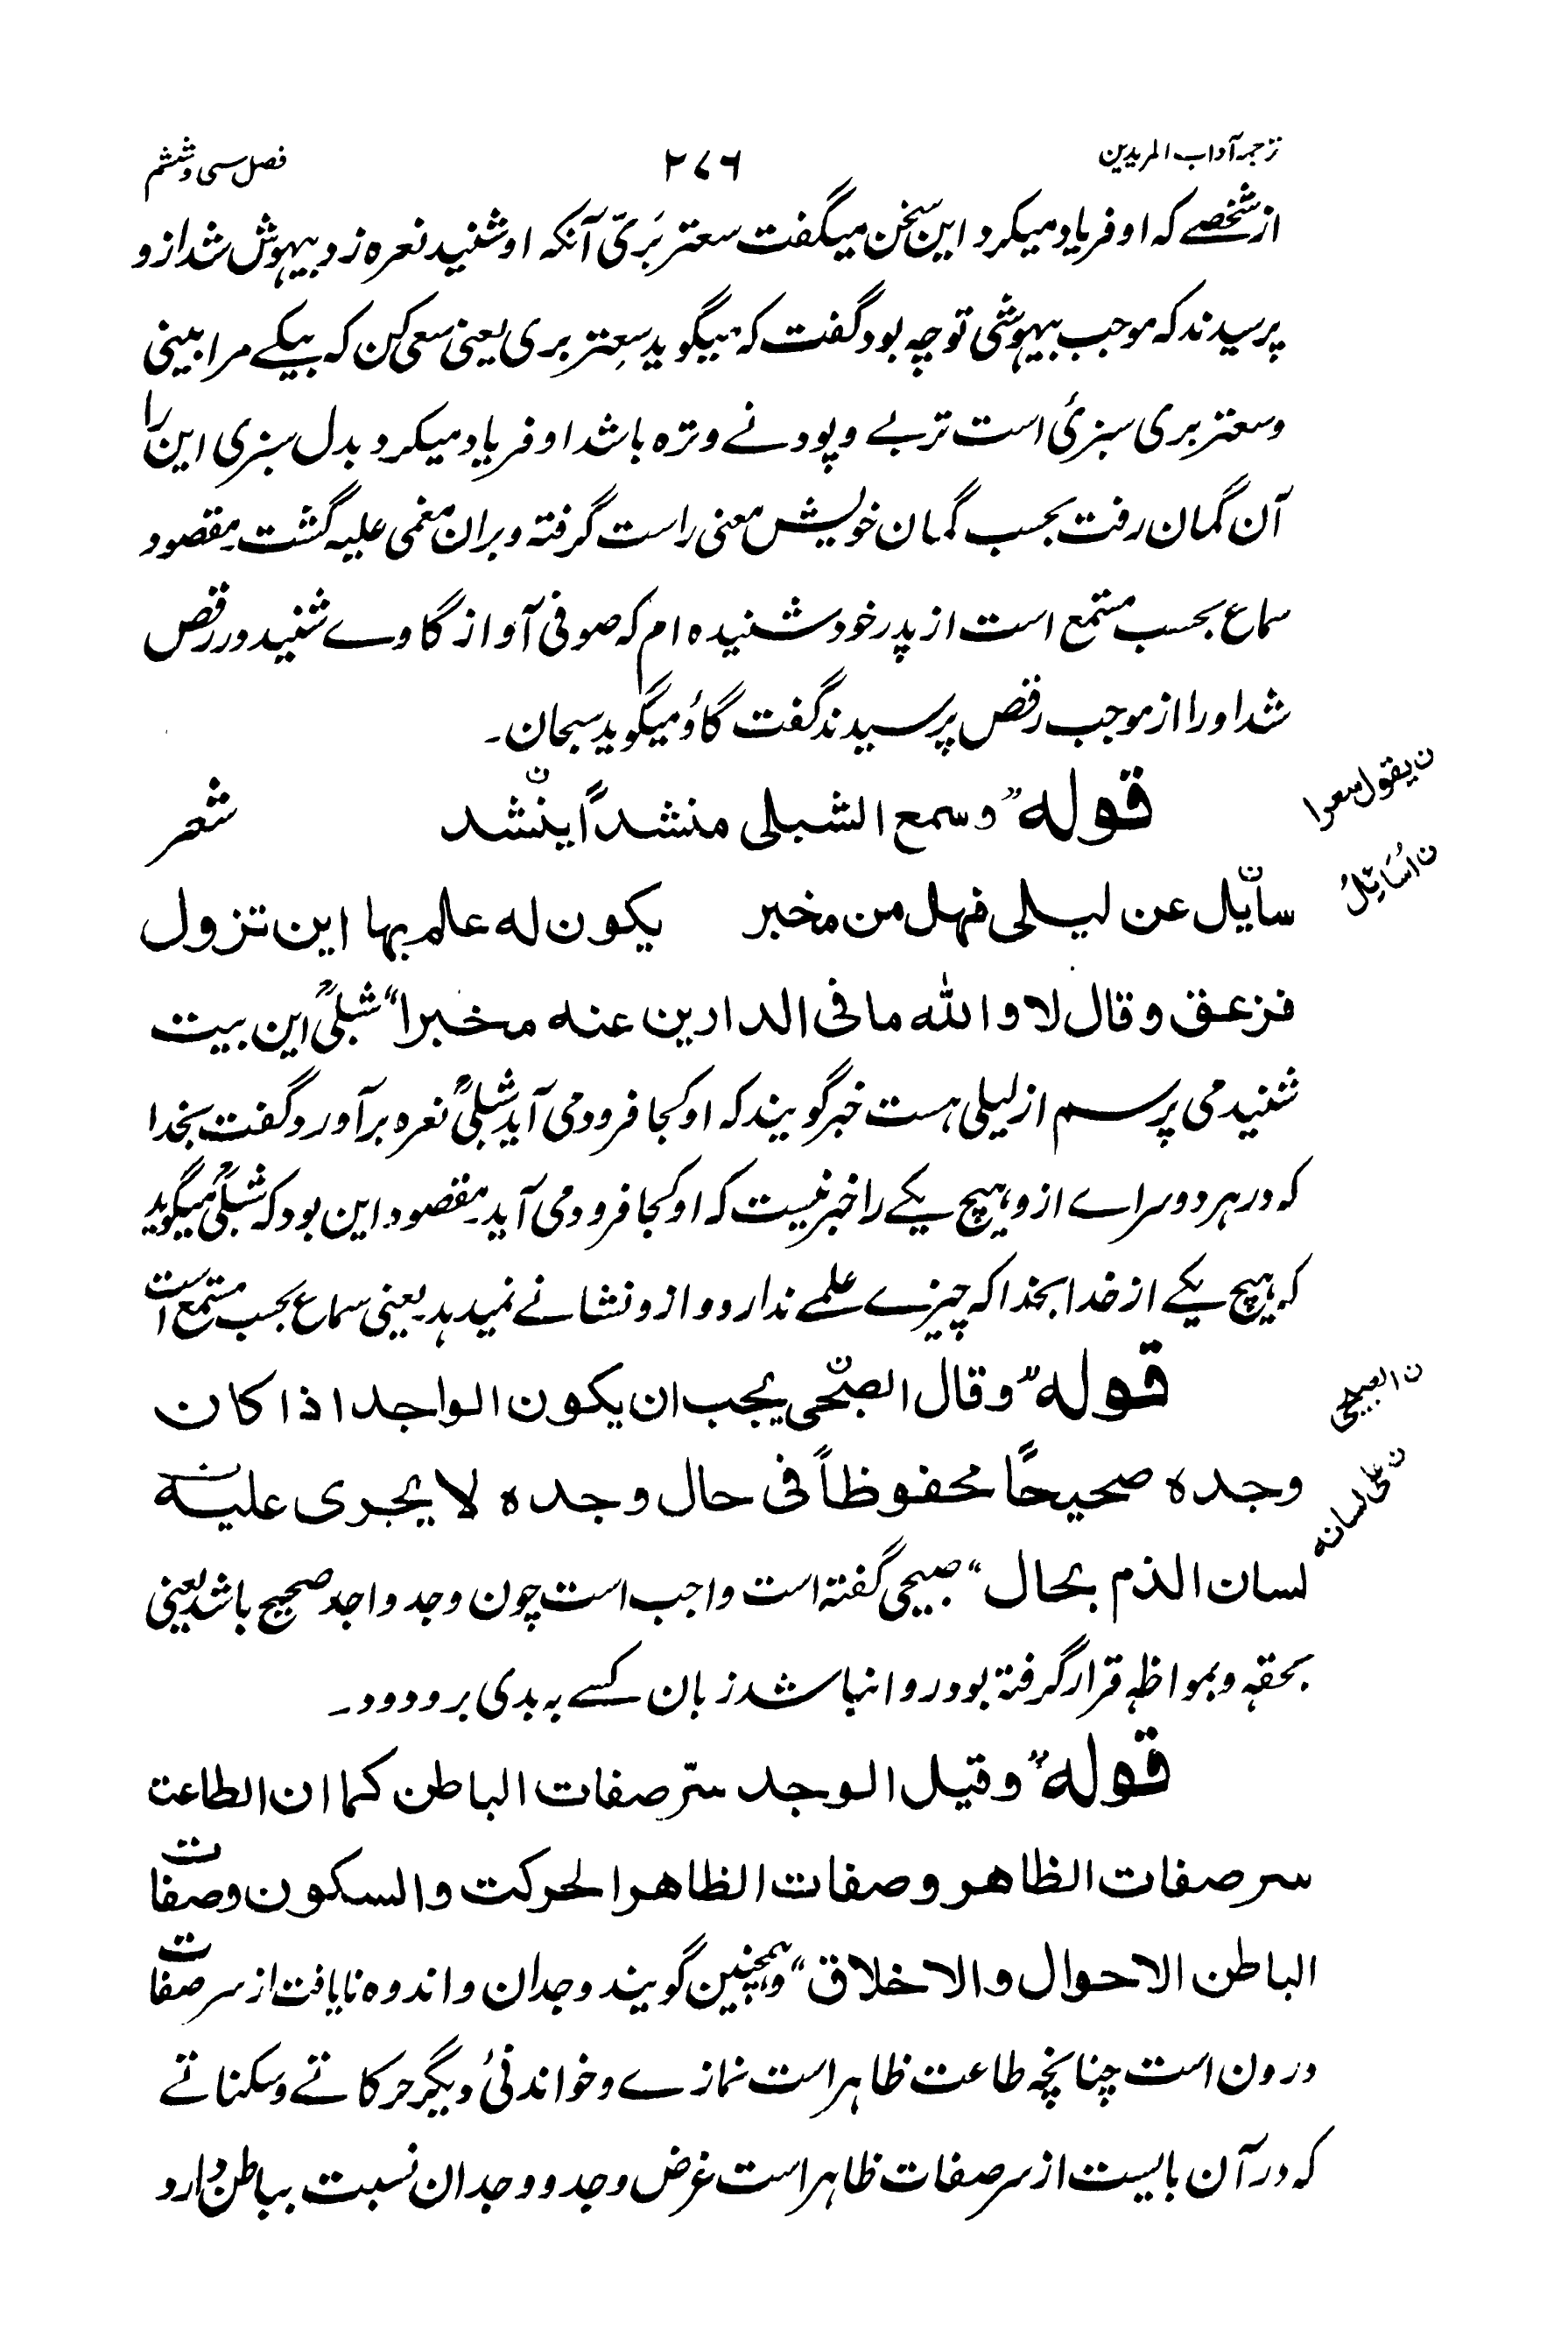 ترجمہ آداب المریدین ۲۷۶ فصل سی و ششم
از شخصے کہ او فریاد میکرد این سخن میگفت سعتر بَریّ آنکہ او شنید نعرہ زد بیہوش شد ازو
پرسیدند کہ موجب بیہوشی تو چہ بود گفت کہ میگوید سعتر بری یعنی سعی کن کہ بیکے مرا بینی
و سعتر بری سبزئ است تربے و پودنے و ترہ باشد او فریاد میکرد بدل سبزی این را
آن گمان رفت بحسب گمان خویش معنی راست گرفتہ و بران مغمی علیہ گشت۔ مقصود
سماع بحسب مستمع است از پدر خود شنیدہ ام کہ صوفی آواز گاوے شنید در رقص
شد او را از موجب رقص پرسیدند گفت گاؤ میگوید سبحان۔
قوله ”وسمع الشبلی منشداً ینشد شعر
ن یقول شعرا
سایل عن لیلی فهل من مخبر یکون له علم بها این تزول
ن اُسَایِلُ
فزعق وقال لا والله ما فی الدارین عنه مخبرا“ شبلیؒ این بیت
شنید می پرسم از لیلی ہست خبر گویند کہ او کجا فرود می آید شبلیؒ نعرہ برآورد گفت بخدا
کہ در ہر دو سراے ازو ہیچ یکے را خبر نیست کہ او کجا فرود می آید۔ مقصود این بود کہ شبلیؒ میگوید
کہ ہیچ یکے از خدا بخدا کہ چیزے علمے ندارد و ازو نشانے نمیدہد۔ یعنی سماع بحسب مستمع است
قوله ”وقال الصبحی یجب ان یکون الواجد اذا کان
ن الصبیحی
وجده صحیحًا محفوظاً فی حال وجده لا یجری علیه
ن علی لسانه
لسان الذم بحال“ صبیحی گفتہ است واجب است چون وجد واجد صحیح باشد یعنی
بحقہ و بمواظبہ قرار گرفتہ بود روا نباشد زبان کسے بہ بدی برو دود۔
قوله ”وقیل الوجد سرّ صفات الباطن کما ان الطاعت
سر صفات الظاهر وصفات الظاهر الحرکت والسکون وصفات
الباطن الاحوال والاخلاق“ و ہمچنین گویند وجدان و اندوہ نایافت از سر صفات
درون است چنانچہ طاعت ظاہر است نمازے و خواندنئ و دیگر حرکاتے و سکناتے
کہ در آن بایست از سر صفات ظاہر است غرض وجد و وجدان نسبت بباطن دارد